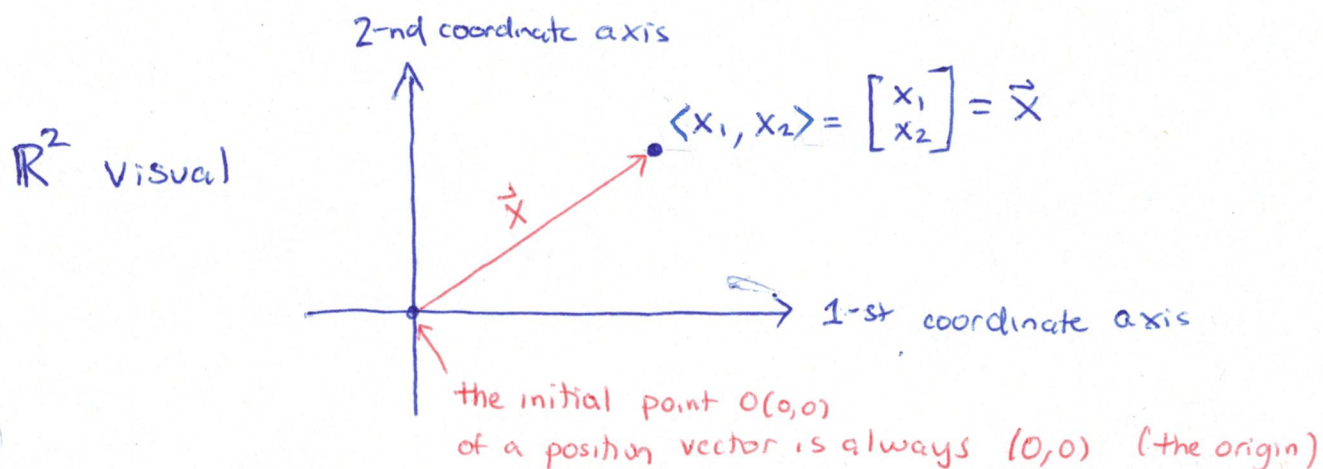 2-nd coordinate axis
<x₁, x₂> = [x₁ x₂] = x⃗
ℝ² visual
x⃗
1-st coordinate axis
the initial point O(0,0)
of a position vector is always (0,0) (the origin)